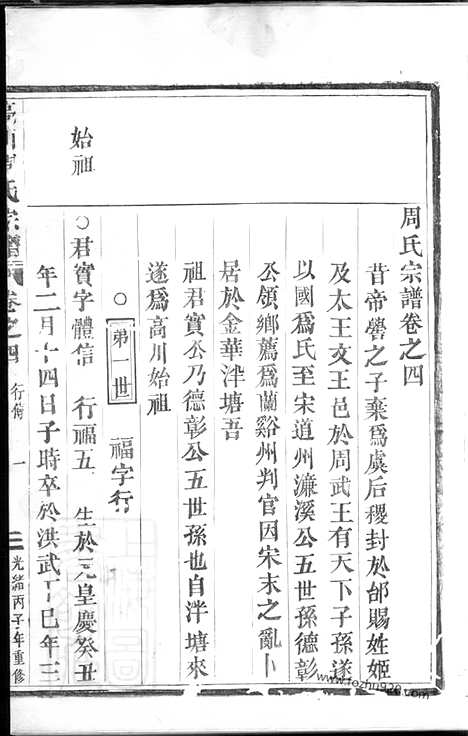 周氏宗譜卷之四
昔帝嚳之子棄爲虞后稷封於邰賜姓姬
及太王文王邑於周武王有天下子孫遂
以國爲氏至宋道州濂溪公五世孫德彰
公領鄉薦爲蘭谿州判官因宋末之亂卜
居於金華泮塘吾
祖君實公乃德彰公五世孫也自泮塘來
遂爲高川始祖
○ 第一世 福字行
始祖
○君實字體信 行福五 生於元皇慶癸丑
年二月十四日子時卒於洪武丁巳年三
川周氏宗譜 卷之四 行傳 一 光緒丙子年重修
www.fozhu920.com